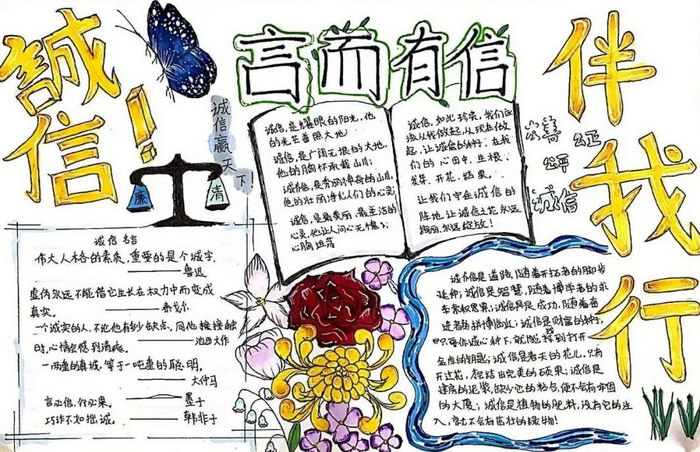 誠信!
言而有信
伴我行
诚信赢天下
廉
清
公正
公平
诚信
诚信名言
伟大人格的素质,重要的是个诚字.
鲁迅
虚伪永远不能借它生长在权力中而变成
真实.
泰戈尔
一个诚实的人,不论他有多少缺点,同他接触
时,心情会感到清爽.
池田大作
一两重的真诚,等于一吨重的聪明.
大仲马
言必信,行必果.
墨子
巧诈不如拙诚.
韩非子
诚信,是耀眼的阳光,他
的光芒普照大地!
诚信,是广阔无垠的大地,
他的胸怀承载山川;
诚信,是秀丽神奇的山川,
他的壮丽净化人们的心灵;
诚信,是最美丽最圣洁的
心灵,他让人间心无惭愧,
心胸坦荡
诚信,如此珍贵,我们应
该从我做起,从现在做
起,让诚信的种子,在我
们的心田中,生根、
发芽、开花、结果.
让我们守住诚信的
阵地,让诚信之花永远
绚丽,永远绽放!
诚信是道路,随着开拓者的脚步
延伸;诚信是智慧,随着博学者的求
索积累;诚信是成功,随着奋
进者的拼搏临近;诚信是财富的种子,
只要你诚心种下,就能找到打开
金库的钥匙;诚信是春天的花儿,只有
开过花,才能结出完美的硕果;诚信是
建房的泥浆,缺少它的粘合,便不会有牢固
的大厦;诚信是植物的肥料,没有它的注
入,就不会有茁壮的绿物!